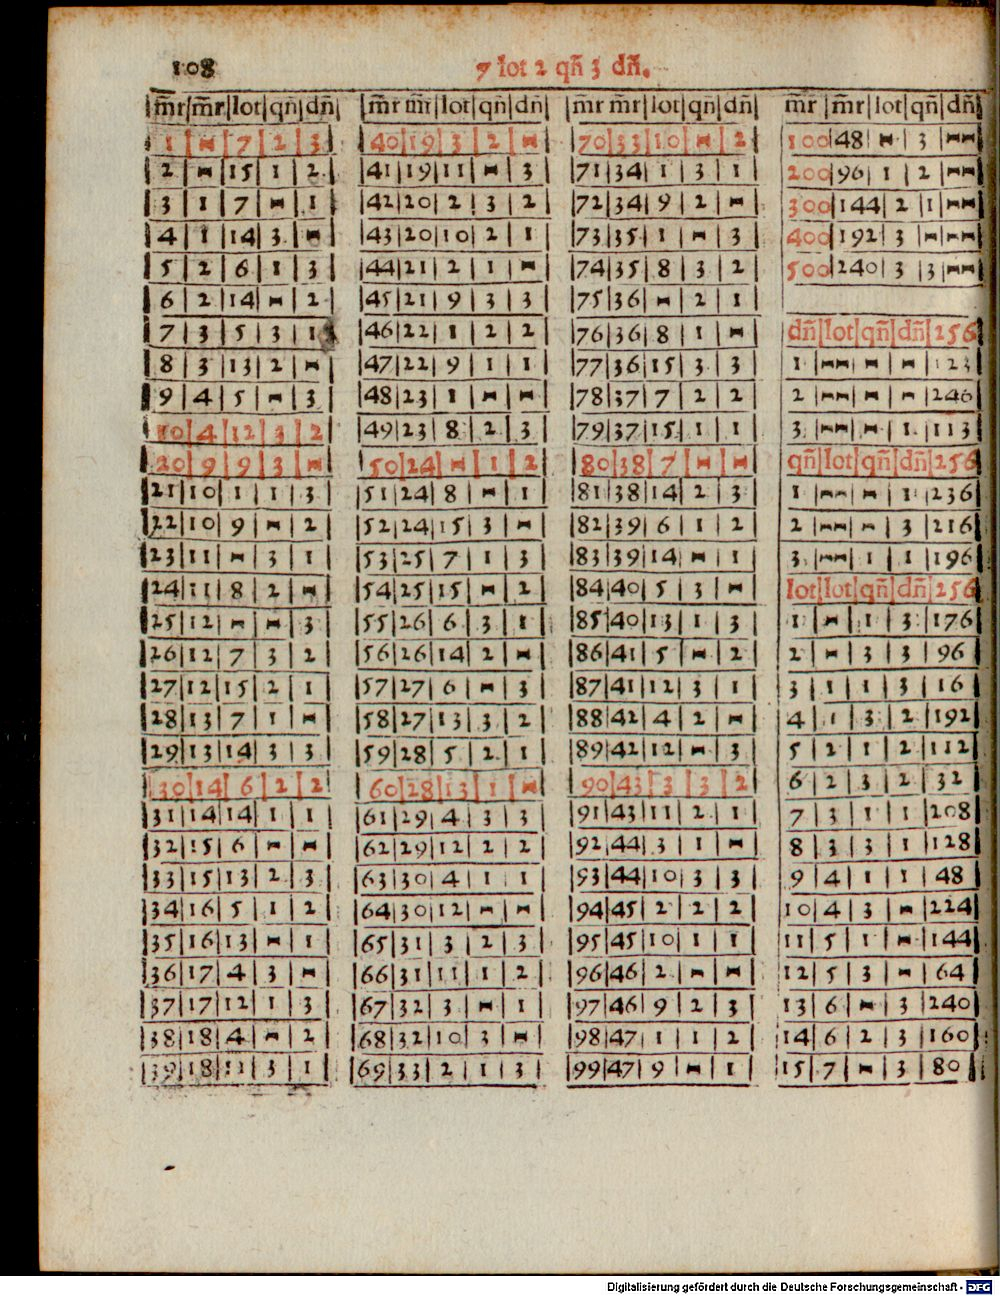 108
7 lot 2 qñ 3 dñ.
|m̄r|m̄r|lot|qñ|dñ|
|1|-|7|2|3|
|2|-|15|1|2|
|3|1|7|-|1|
|4|1|14|3|-|
|5|2|6|1|3|
|6|2|14|-|2|
|7|3|5|3|1|
|8|3|13|2|-|
|9|4|5|-|3|
|10|4|12|3|2|
|20|9|9|3|-|
|21|10|1|1|3|
|22|10|9|-|2|
|23|11|-|3|1|
|24|11|8|2|-|
|25|12|-|-|3|
|26|12|7|3|2|
|27|12|15|2|1|
|28|13|7|1|-|
|29|13|14|3|3|
|30|14|6|2|2|
|31|14|14|1|1|
|32|15|6|-|-|
|33|15|13|2|3|
|34|16|5|1|2|
|35|16|13|-|1|
|36|17|4|3|-|
|37|17|12|1|3|
|38|18|4|-|2|
|39|18|11|3|1|
|m̄r m̄r|lot|qñ|dñ|
|40|19|3|2|-|
|41|19|11|-|3|
|42|20|2|3|2|
|43|20|10|2|1|
|44|21|2|1|-|
|45|21|9|3|3|
|46|22|1|2|2|
|47|22|9|1|1|
|48|23|1|-|-|
|49|23|8|2|3|
|50|24|-|1|2|
|51|24|8|-|1|
|52|24|15|3|-|
|53|25|7|1|3|
|54|25|15|-|2|
|55|26|6|3|1|
|56|26|14|2|-|
|57|27|6|-|3|
|58|27|13|3|2|
|59|28|5|2|1|
|60|28|13|1|-|
|61|29|4|3|3|
|62|29|12|2|2|
|63|30|4|1|1|
|64|30|12|-|-|
|65|31|3|2|3|
|66|31|11|1|2|
|67|32|3|-|1|
|68|32|10|3|-|
|69|33|2|1|3|
|m̄r m̄r|lot|qñ|dñ|
|70|33|10|-|2|
|71|34|1|3|1|
|72|34|9|2|-|
|73|35|1|-|3|
|74|35|8|3|2|
|75|36|-|2|1|
|76|36|8|1|-|
|77|36|15|3|3|
|78|37|7|2|2|
|79|37|15|1|1|
|80|38|7|-|-|
|81|38|14|2|3|
|82|39|6|1|2|
|83|39|14|-|1|
|84|40|5|3|-|
|85|40|13|1|3|
|86|41|5|-|2|
|87|41|12|3|1|
|88|42|4|2|-|
|89|42|12|-|3|
|90|43|3|3|2|
|91|43|11|2|1|
|92|44|3|1|-|
|93|44|10|3|3|
|94|45|2|2|2|
|95|45|10|1|1|
|96|46|2|-|-|
|97|46|9|2|3|
|98|47|1|1|2|
|99|47|9|-|1|
m̄r|m̄r|lot|qñ|dñ|
100|48|-|3|--|
200|96|1|2|--|
300|144|2|1|--|
400|192|3|-|--|
500|240|3|3|--|
dñ|lot|qñ|dñ|256
1|--|-|-|123
2|--|-|-|246
3|--|-|1|113
qñ|lot|qñ|dñ|256
1|--|-|1|236
2|--|-|3|216
3|--|1|1|196
lot|lot|qñ|dñ|256
1|-|1|3|176
2|-|3|3|96
3|1|1|3|16
4|1|3|2|192
5|2|1|2|112
6|2|3|2|32
7|3|1|1|208
8|3|3|1|128
9|4|1|1|48
10|4|3|-|224
11|5|1|-|144
12|5|3|-|64
13|6|-|3|240
14|6|2|3|160
15|7|-|3|80
Digitalisierung gefördert durch die Deutsche Forschungsgemeinschaft - DFG